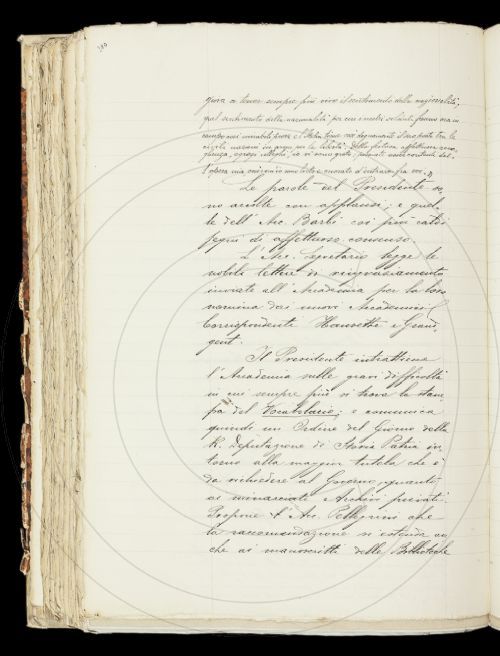 giova a tener sempre più vivo il sentimento della nazionalità,
quel sentimento della nazionalità per cui i nostri soldati fanno ora in
campo così mirabili prove e l'Italia tiene così degnamente il suo posto tra le
civili nazioni in armi per la libertà. Della fattiva
egregi colleghi, io vi sono grato;
l'opera mia onorato d'entrare fra voi.»
Le parole del Presidente so-
no accolte con applausi; e quel-
le dell'Acc. Barbi con più caldi
segni di affettuoso consenso.
L'Acc. Segretario legge le
nobili lettere di ringraziamento
inviate all'Accademia per la loro
nomina dai nuovi Accademici
Corrispondenti Hauvette e Grand-
gent.
Il Presidente intrattiene
l'Accademia sulle gravi difficoltà
in cui sempre più si trova la stam-
pa del Vocabolario; e comunica
quindi un Ordine del Giorno della
R. Deputazione di Storia Patria in-
torno alla maggior tutela che è
da richiedere al Governo, quanto
ai minacciati Archivi privati.
Propone l'Acc. Pellegrini che
la raccomandazione si estenda an-
che ai manoscritti delle Biblioteche